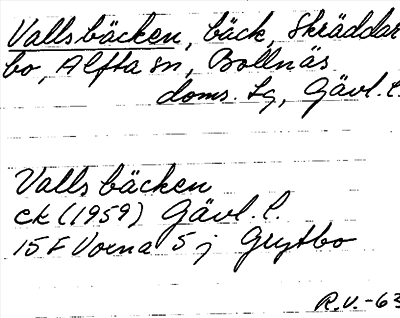 Vallsbäcken, bäck, Skräddar
bo, Alfta sn, Bollnäs
doms. Lg, Gävl. l.
Vallsbäcken
ek (1959) Gävl. l.
15 F Voxna 5 j Grytbo
R.V.-63